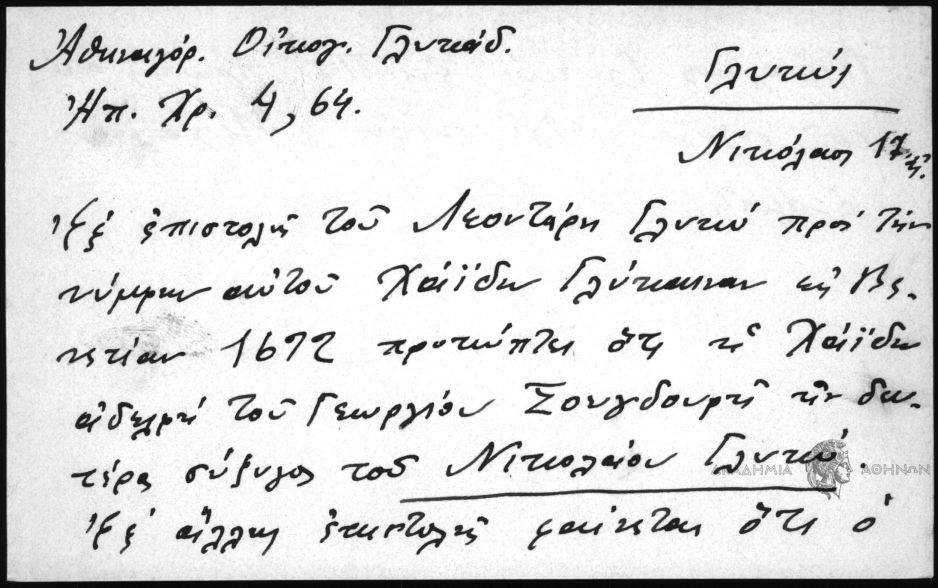 Ἀθηναγόρ. Οἰκογ. Γλυκάδ.
Ἠπ. Χρ. 4, 64.
Γλυκύς
Νικόλαος 17
Ἐξ ἐπιστολῆς τοῦ Λεοντάρη Γλυκύ πρός τήν
νύμφην αὐτοῦ Χάϊδω Γλύκαιναν εἰς Βε-
νετίαν 1672 προκύπτει ὅτι ἡ Χάϊδω
ἀδελφή τοῦ Γεωργίου Σουγδουρῆ ἦν δευ-
τέρα σύζυγος τοῦ Νικολάου Γλυκύ.
ΑΚΑΔΗΜΙΑ ΑΘΗΝΩΝ
Ἐξ ἄλλης ἐπιστολῆς φαίνεται ὅτι ὁ